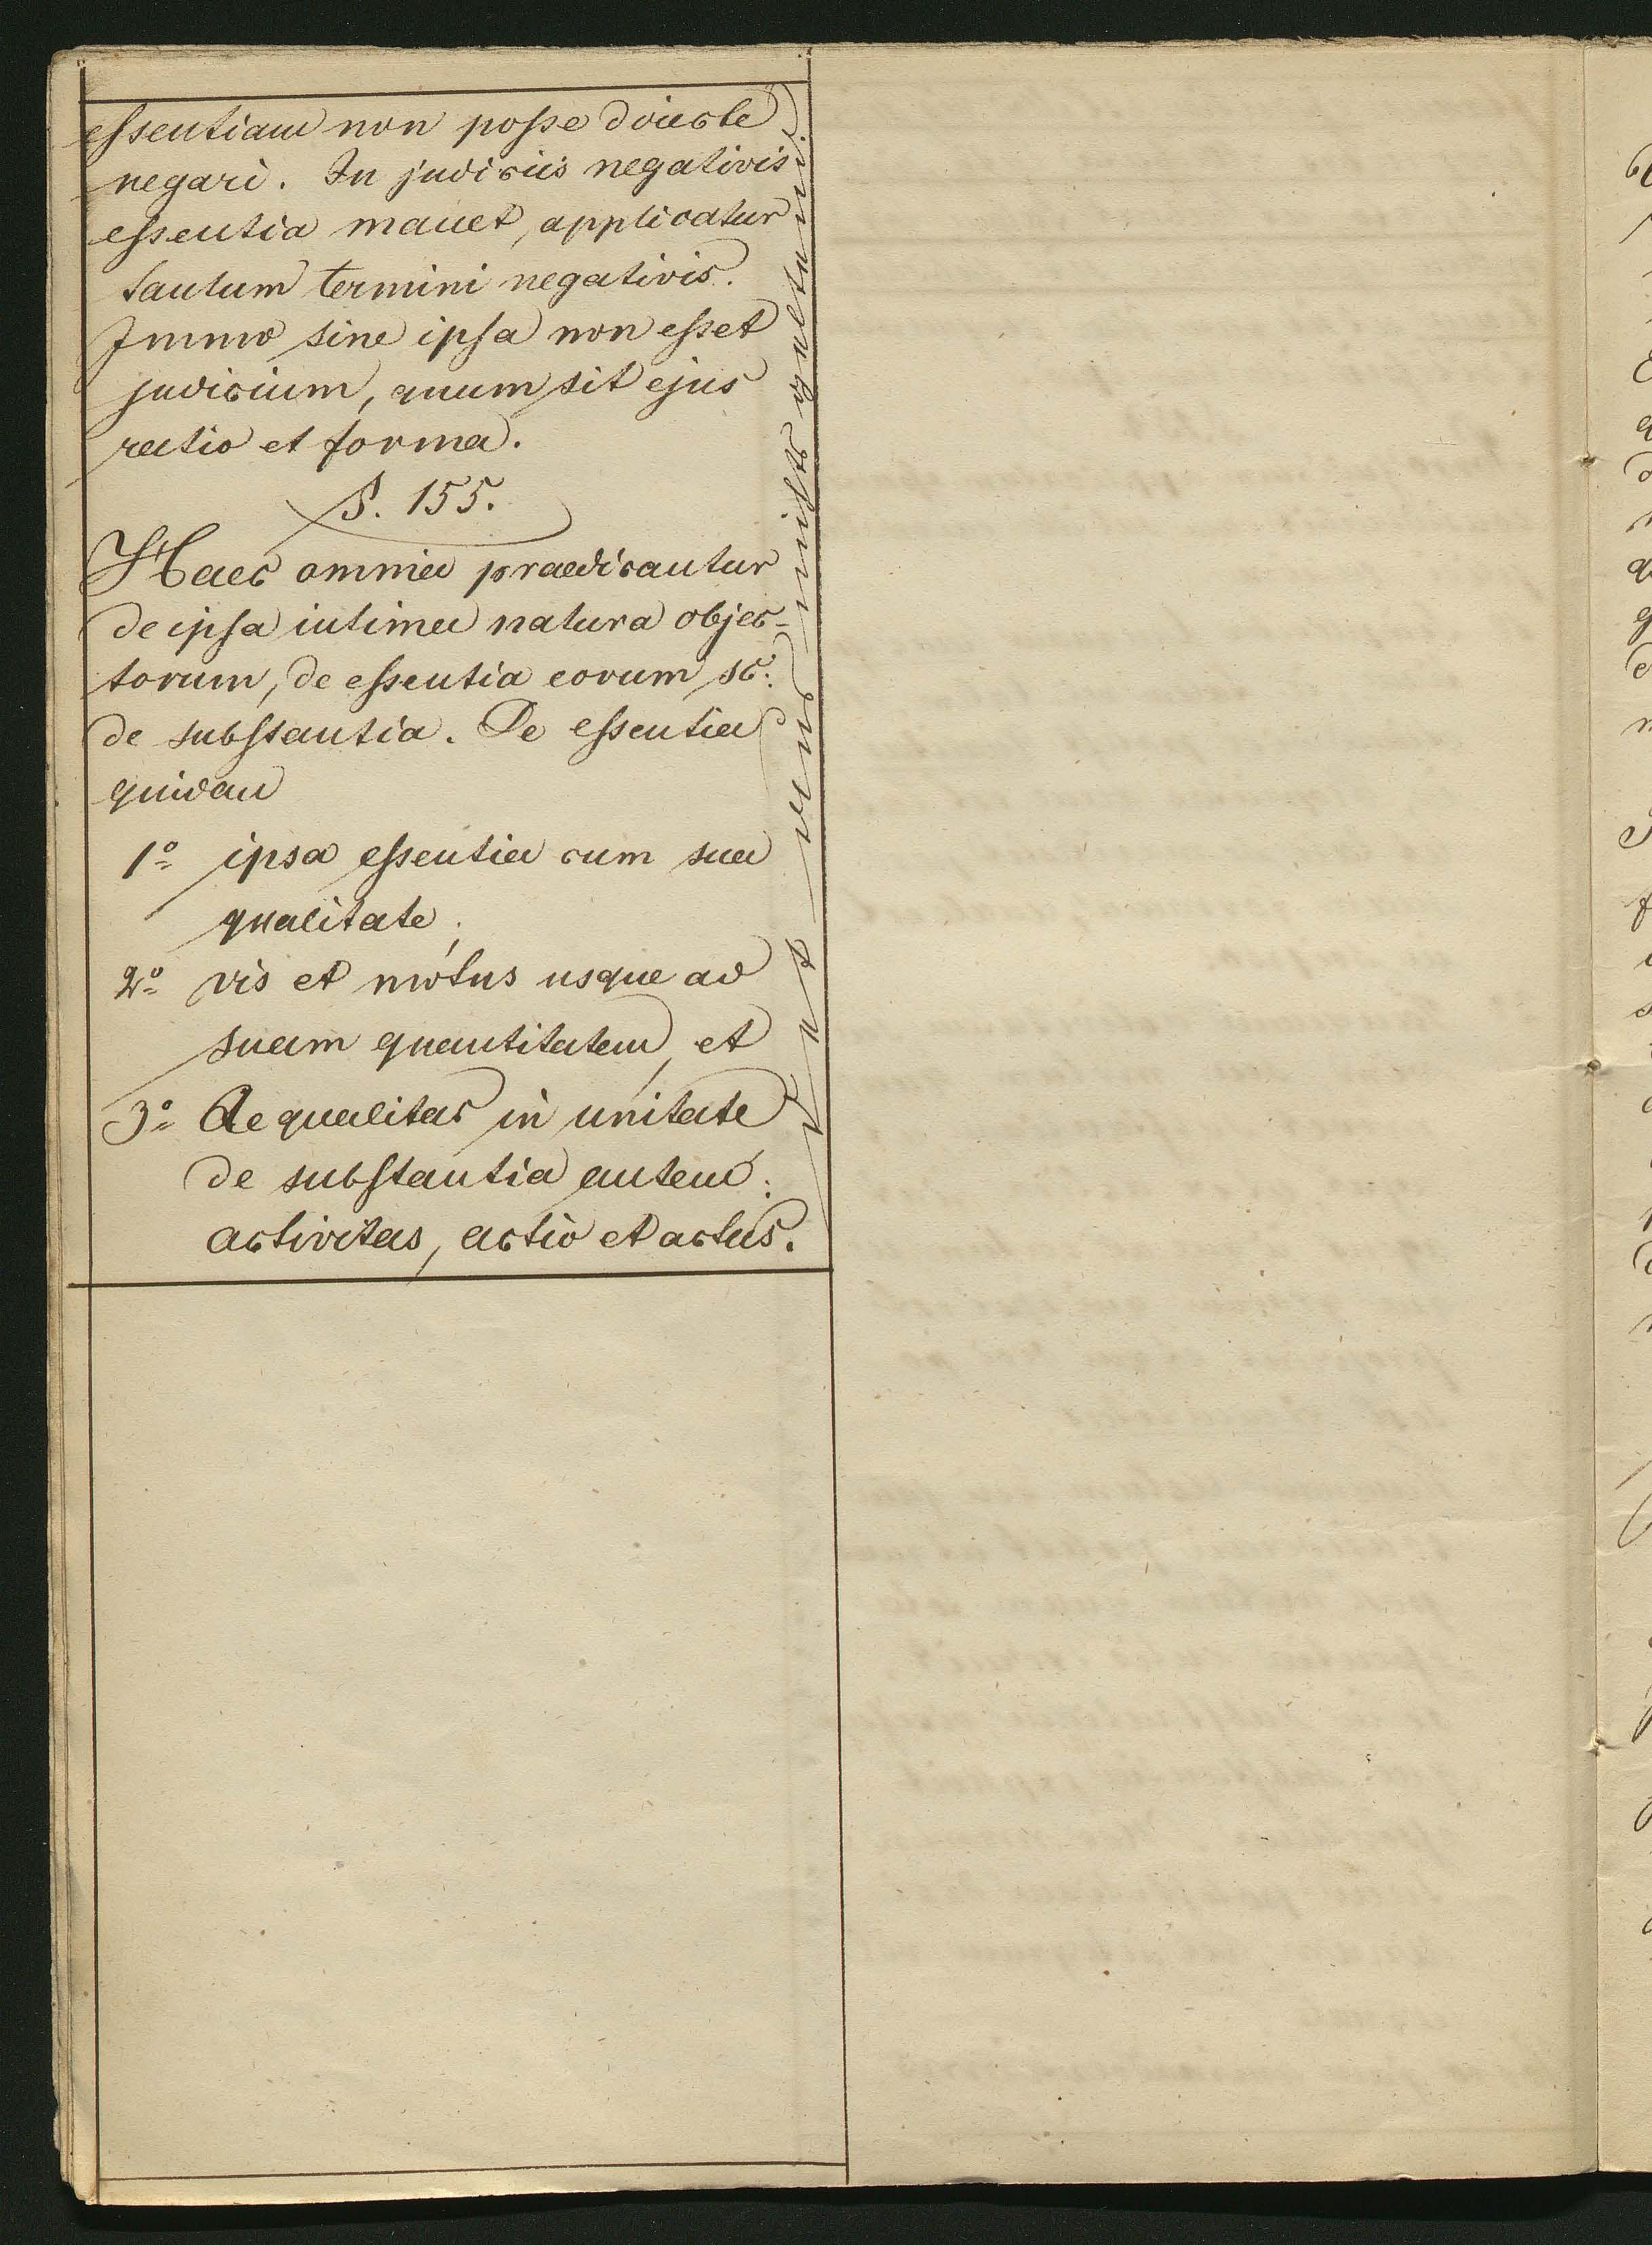 essentiam non posse directe
negari. In judiciis negativis
essentia manet, applicatur
tantum termini negativis.
Immo sine ipsa non esset
judicium, quum sit ejus
ratio et forma.
§. 155.
Haec omnia praedicantur
de ipsa intima natura objec-
torum, de essentia eorum sc:
de substantia. De essentia
quidam
1o ipsa essentia cum sua
qualitate;
2o vis et motus usque ad
suam quantitatem, et
3o Aequalitas in unitate
de substantia autem:
activitas, actio et actus.